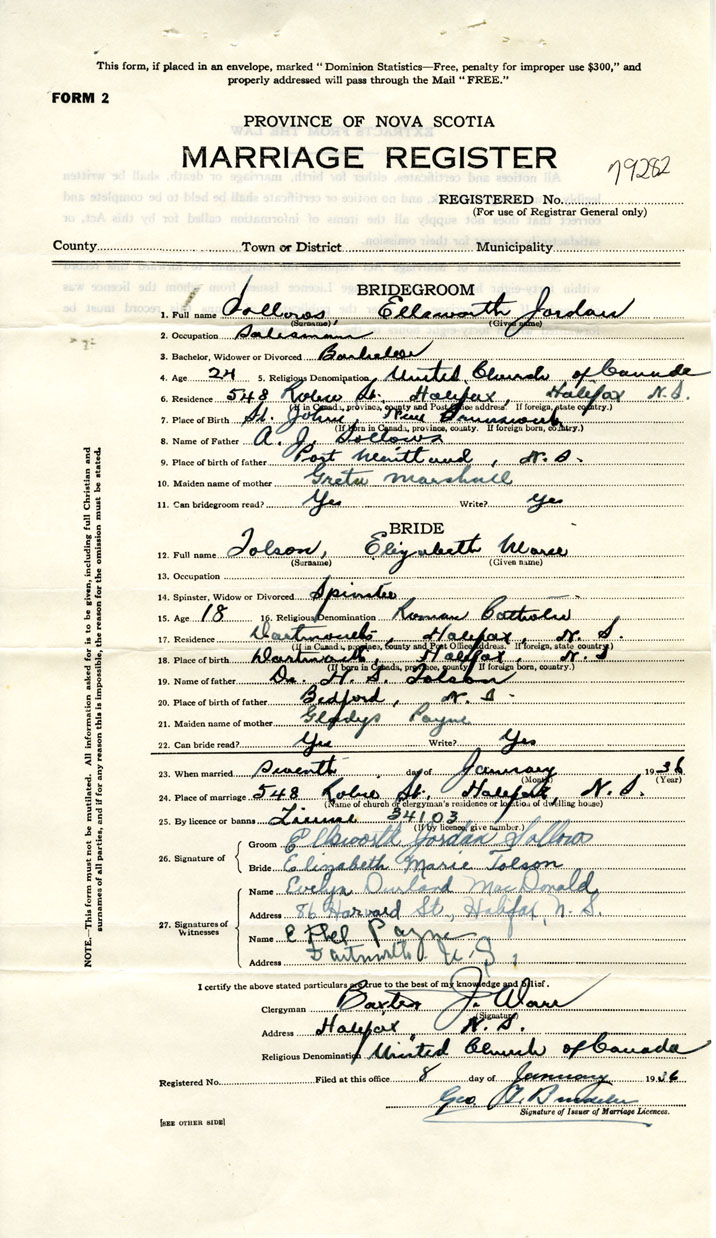 This form, if placed in an envelope, marked "Dominion Statistics—Free, penalty for improper use $300," and
properly addressed will pass through the Mail "FREE."
FORM 2
PROVINCE OF NOVA SCOTIA
MARRIAGE REGISTER
79282
REGISTERED No.
(For use of Registrar General only)
County Town or District Municipality
BRIDEGROOM
1. Full name Sollows, Ellsworth Jordan
(Surname) (Given name)
2. Occupation Salesman
3. Bachelor, Widower or Divorced Bachelor
4. Age 24 5. Religious Denomination United Church of Canada
6. Residence 548 Robie St. Halifax, Halifax N.S.
(If in Canada, province, county and Post Office address. If foreign, state country.)
7. Place of Birth St. John, New Brunswick
(If born in Canada, province, county. If foreign born, country.)
8. Name of Father A. J. Sollows
9. Place of birth of father Port Maitland, N.S.
10. Maiden name of mother Greta Marshall
11. Can bridegroom read? Yes Write? Yes
BRIDE
12. Full name Tolson, Elizabeth Marie
(Surname) (Given name)
13. Occupation
14. Spinster, Widow or Divorced Spinster
15. Age 18 16. Religious Denomination Roman Catholic
17. Residence Dartmouth, Halifax, N.S.
(If in Canada, province, county and Post Office Address. If foreign, state country.)
18. Place of birth Dartmouth, Halifax, N.S
(If born in Canada, province, county. If foreign born, country.)
19. Name of father Dr. H. S. Tolson
20. Place of birth of father Bedford, N.S.
21. Maiden name of mother Gladys Payne
22. Can bride read? Yes Write? Yes
23. When married Seventh day of January 1936
(Month) (Year)
24. Place of marriage 548 Robie St. Halifax, N.S.
(Name of church or clergyman's residence or location of dwelling house)
25. By licence or banns License 34103
(If by licence, give number.)
26. Signature of
Groom Ellsworth Jordan Sollows
Bride Elizabeth Marie Tolson
27. Signatures of Witnesses
Name Evelyn Durland MacDonald
Address 86 Harvard St., Halifax, N.S.
Name Ethel Payne
Address Dartmouth N.S.
I certify the above stated particulars are true to the best of my knowledge and belief.
Clergyman Baxter J.
(Signature)
Address Halifax N.S.
Religious Denomination United Church of Canada
Registered No. Filed at this office 8 day of January 1936
Geo.
Signature of Issuer of Marriage Licences.
[SEE OTHER SIDE]
NOTE.—This form must not be mutilated. All information asked for is to be given, including full Christian and
surnames of all parties, and if for any reason this is impossible, the reason for the omission must be stated.